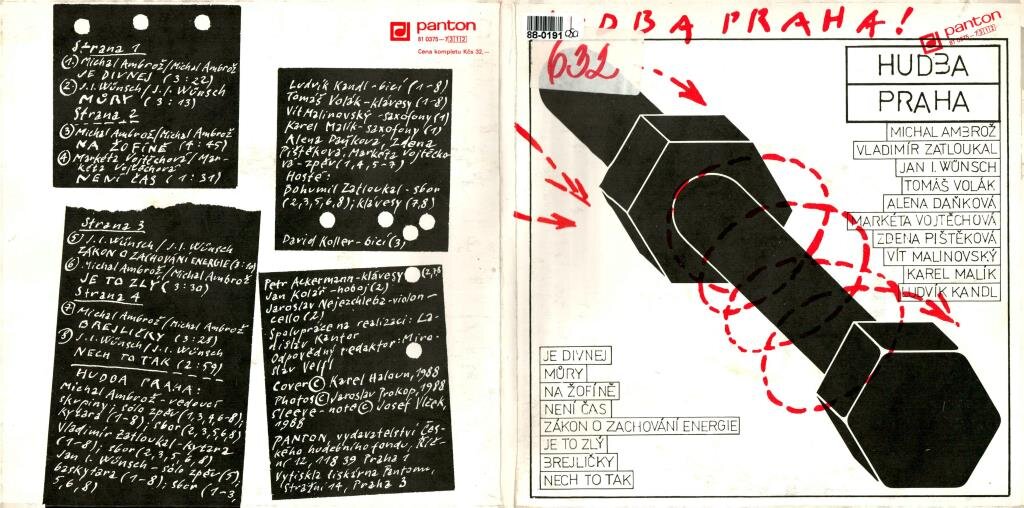 Strana 1
① Michal Ambrož/Michal Ambrož
JE DIVNEJ (3:22)
② J.I. Wünsch/J.I. Wünsch
MŮRY (3:13)
Strana 2
③ Michal Ambrož/Michal Ambrož
NA ŽOFÍNĚ (4:45)
④ Markéta Vojtěchova/Mar-
kéta Vojtěchová
NENÍ ČAS (1:31)
Strana 3
⑤ J.I. Wünsch/J.I. Wünsch
ZÁKON O ZACHOVÁNÍ ENERGIE
⑥ Michal Ambrož/Michal Ambrož
JE TO ZLÝ (3:30)
Strana 4
⑦ Michal Ambrož/Michal Ambrož
BREJLIČKY (3:25)
⑧ J.I. Wünsch/J.I. Wünsch
NECH TO TAK (2:59)
HUDBA PRAHA:
Michal Ambrož - vedoucí
skupiny; sólo zpěv (1,3,4,6-8),
kytara (1-8); sbor (2,3,5,6,8)
Vladimír Zatloukal - kytara
(1-8); sbor (2,3,5,6,8)
Jan I. Wünsch - sólo zpěv (5),
baskytara (1-8); sbor (1-3,
5,6,8)
panton
81 0375-1 311 2
Cena kompletu Kčs 32,-
Ludvík Kandl - bicí (1-8)
Tomáš Volák - klávesy (1-8)
Vít Malinovský - saxofony (1)
Karel Malík - saxofony (1)
Alena Daňková, Zdena
Pištěková, Markéta Vojtěcho-
vá - zpěv (1,4,5-8)
Hosté:
Bohumil Zatloukal - sbor
(2,3,5,6,8); klávesy (7,8)
David Koller - bicí (3)
Petr Ackermann - klávesy (2,7,8
Jan Kolář - hoboj (2)
Jaroslav Nejezchleba - violon-
cello (2)
Spolupráce na realizaci: La-
dislav Kantor
Odpovědný redaktor: Miro-
slav Velfl
Cover © Karel Haloun, 1988
Photos © Jaroslav Prokop, 1988
Sleeve-note © Josef Vlček,
1988
PANTON, vydavatelství Čes-
kého hudebního fondu, Říč-
ní 12, 118 39 Praha 1
Vytiskla tiskárna Pantonu,
Strážní 14, Praha 3
88-0191
DBA PRAHA!
632
panton
HUDBA
PRAHA
MICHAL AMBROŽ
VLADIMÍR ZATLOUKAL
JAN I. WÜNSCH
TOMÁŠ VOLÁK
ALENA DAŇKOVÁ
MARKÉTA VOJTĚCHOVÁ
ZDENA PIŠTĚKOVÁ
VÍT MALINOVSKÝ
KAREL MALÍK
LUDVÍK KANDL
JE DIVNEJ
MŮRY
NA ŽOFÍNĚ
NENÍ ČAS
ZÁKON O ZACHOVÁNÍ ENERGIE
JE TO ZLÝ
BREJLIČKY
NECH TO TAK